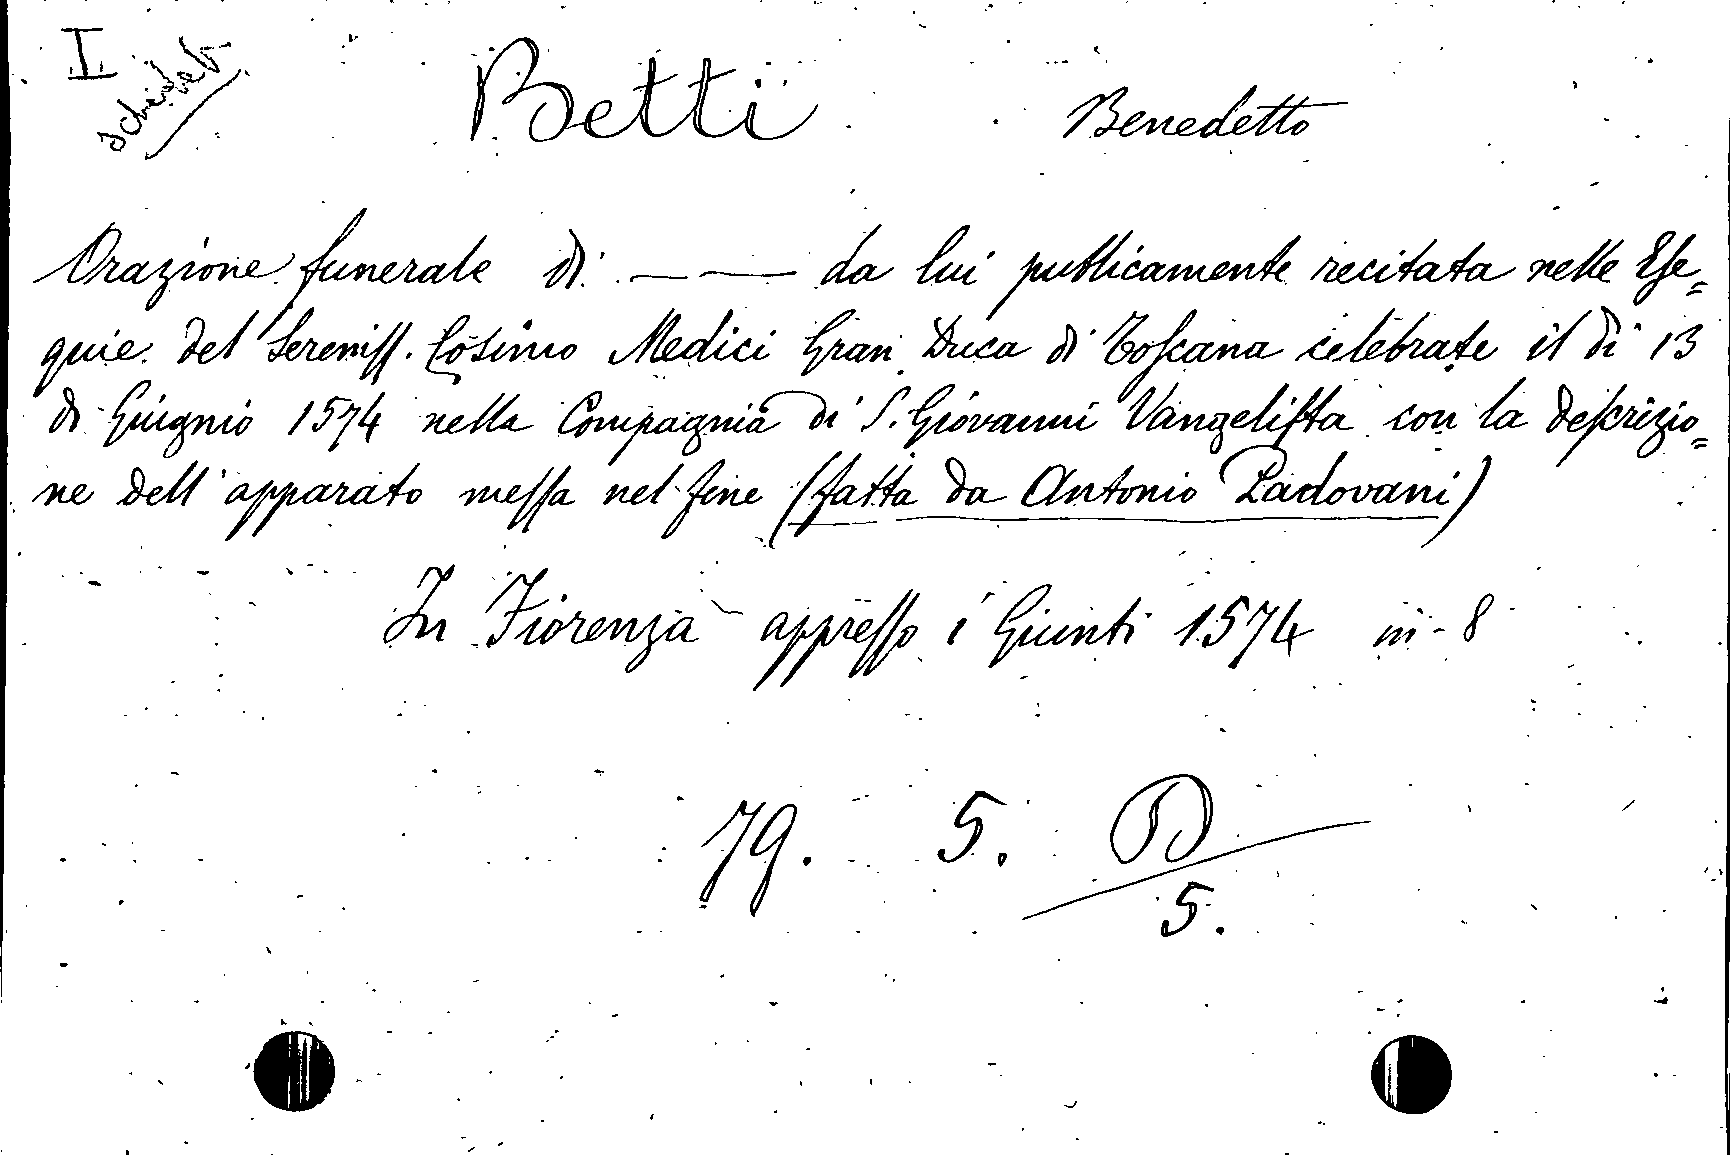 I
schedat
Betti Benedetto
Orazione funerale di — — da lui publicamente recitata nelle Ese=
quie del Sereniss. Cosimo Medici Gran Duca di Toscana celebrate il dì 13
di Giugnio 1574 nella Compagnia di S. Giovanni Vangelista con la descrizio=
ne dell'apparato messa nel fine (fatta da Antonio Padovani)
In Fiorenza appresso i Giunti 1574 in-8
79. 5. D
5.